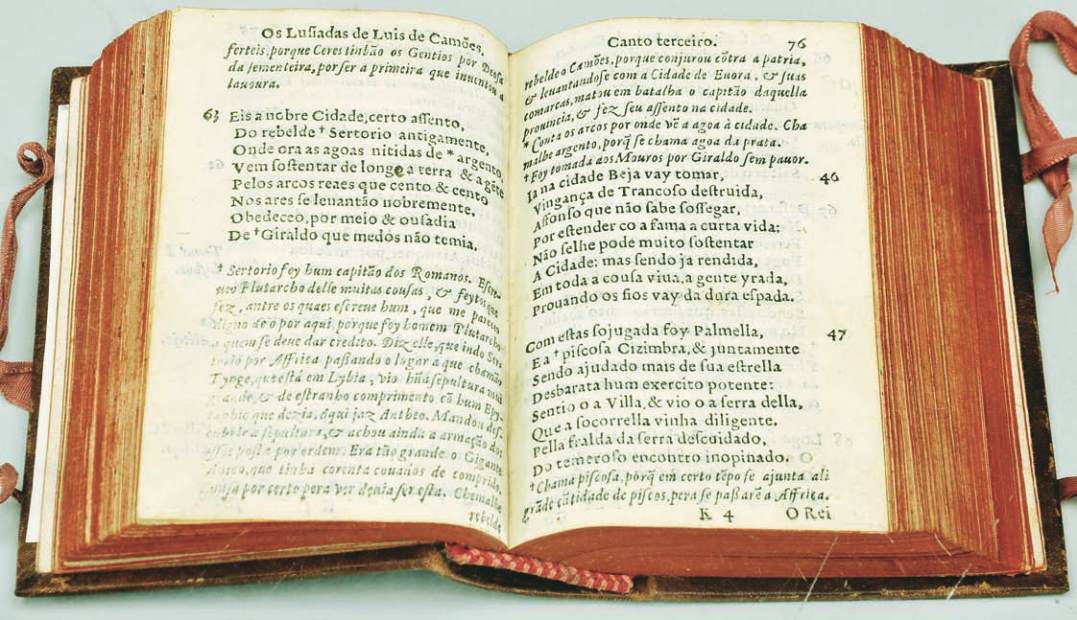 Os Lusiadas de Luis de Camões,
ferteis, porque Ceres tinhão os Gentios por Deosa
da sementeira, por ser a primeira que inuentou a
lauoura.
63 Eis a nobre Cidade, certo assento,
Do rebelde † Sertorio antigamente,
Onde ora as agoas nitidas de * argento
Vem sostentar de longe a terra & a gẽte
Pelos arcos reaes que cento & cento
Nos ares se leuantão nobremente.
Obedeceo, por meio & ousadia
De † Giraldo que medos não temia.
† Sertorio foy hum capitão dos Romanos. Escre-
ueo Plutarcho delle muitas cousas, & feytos que
fez, antre os quaes escreue hum, que me pareceo
digno de o por aqui, porque foy homem Plutarcho
a quem se deue dar credito. Diz elle, que indo Ser-
torio por Affrica passando o lugar a que chamão
Tynge, que está em Lybia, vio hũa sepultura mui
grande, & de estranho comprimento cõ hum Epy-
que dezia, Aqui jaz Antheo. Mandou des-
cubrir a sepultura, & achou ainda a armação dos
ossos posta por ordem. Era tão grande o Gigante
Anteo, que tinha corenta couados de comprido.
Cousa por certo pera ver deuia ser esta. Chamalhe
rebelde
Canto terceiro. 76
rebelde o Camões, porque conjurou cõtra a patria,
& leuantandose com a Cidade de Euora, & suas
comarcas, matou em batalha o capitão daquella
prouincia, & fez seu assento na cidade.
* Conta os arcos por onde vẽ a agoa à cidade. Cha
malhe argento, porq̃ se chama agoa da prata.
† Foy tomada aos Mouros por Giraldo sem pauor.
Ia na cidade Beja vay tomar, 46
Vingança de Trancoso destruida,
Affonso que não sabe sossegar,
Por estender co a fama a curta vida:
Não selhe pode muito sostentar
A Cidade: mas sendo ja rendida,
Em toda a cousa viua, a gente yrada,
Prouando os fios vay da dura espada.
Com estas sojugada foy Palmella, 47
E a † piscosa Cizimbra, & juntamente
Sendo ajudado mais de sua estrella
Desbarata hum exercito potente:
Sentio o a Villa, & vio o a serra della,
Que a socorrella vinha diligente.
Pella fralda da serra descuidado,
Do temeroso encontro inopinado.
† Chama piscosa, porq̃ em certo tẽpo se ajunta ali
grãde cãtidade de piscos, pera se passarẽ a Affrica.
K 4 O Rei